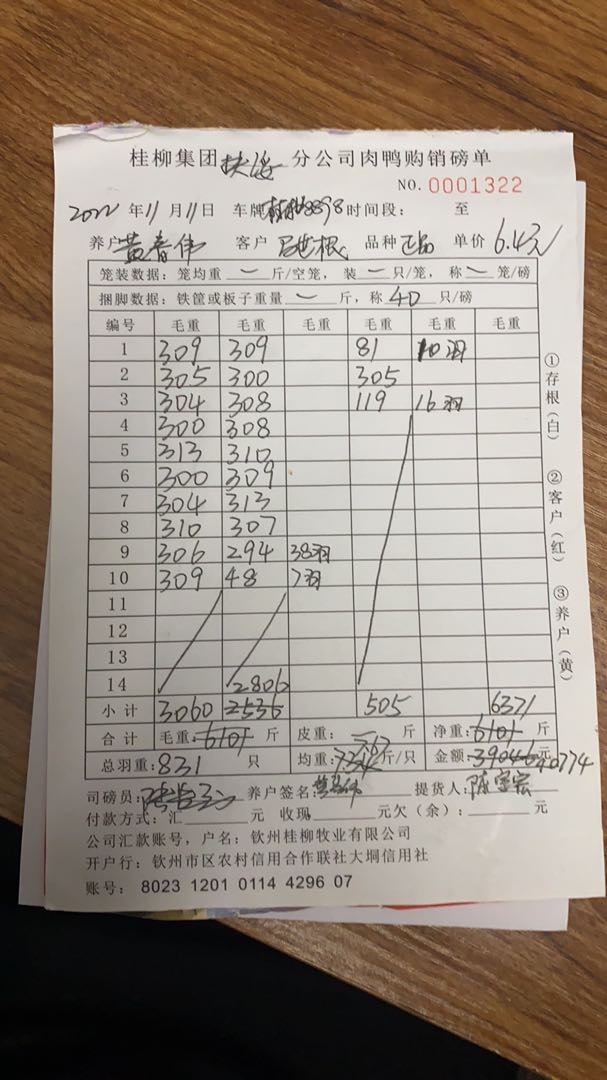 桂柳集团 扶绥 分公司肉鸭购销磅单
NO. 0001322
2022 年 11 月 11 日 车牌 8898 时间段: 至
养户 黄春伟 客户 品种 正品 单价 6.4元
笼装数据: 笼均重 一 斤/空笼, 装 一 只/笼, 称 一 笼/磅
捆脚数据: 铁筐或板子重量 一 斤, 称 40 只/磅
编号 毛重 毛重 毛重 毛重 毛重 毛重
1 309 309 81 10羽
2 305 300 305
3 304 308 119 16羽
4 300 308
5 313 310
6 300 309
7 304 313
8 310 307
9 306 294 38羽
10 309 48 7羽
11
12
13
14 2806
小计 3060 2536 505 6371
合计 毛重: 6101 斤 皮重: 斤 净重: 6101 斤
总羽重: 831 只 均重: 734 767 斤/只 金额: 39046 元 40774
司磅员: 养户签名: 黄春伟 提货人: 陈宝宏
付款方式: 汇 元 收现 元欠(余): 元
公司汇款账号, 户名: 钦州桂柳牧业有限公司
开户行: 钦州市区农村信用合作联社大垌信用社
账号: 8023 1201 0114 4296 07
①存根(白)
②客户(红)
③养户(黄)